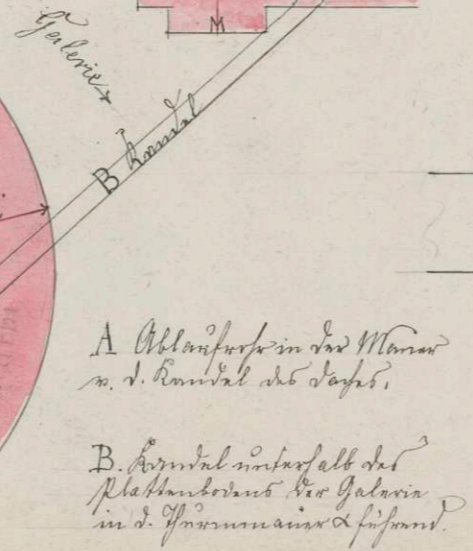 Galerie
M
B Kandel
A Ablaufrohr in der Mauer
v. d. Kandel des Daches.
B. Kandel unterhalb des
Plattenbodens der Galerie
in d. Thurmmauer & führend.